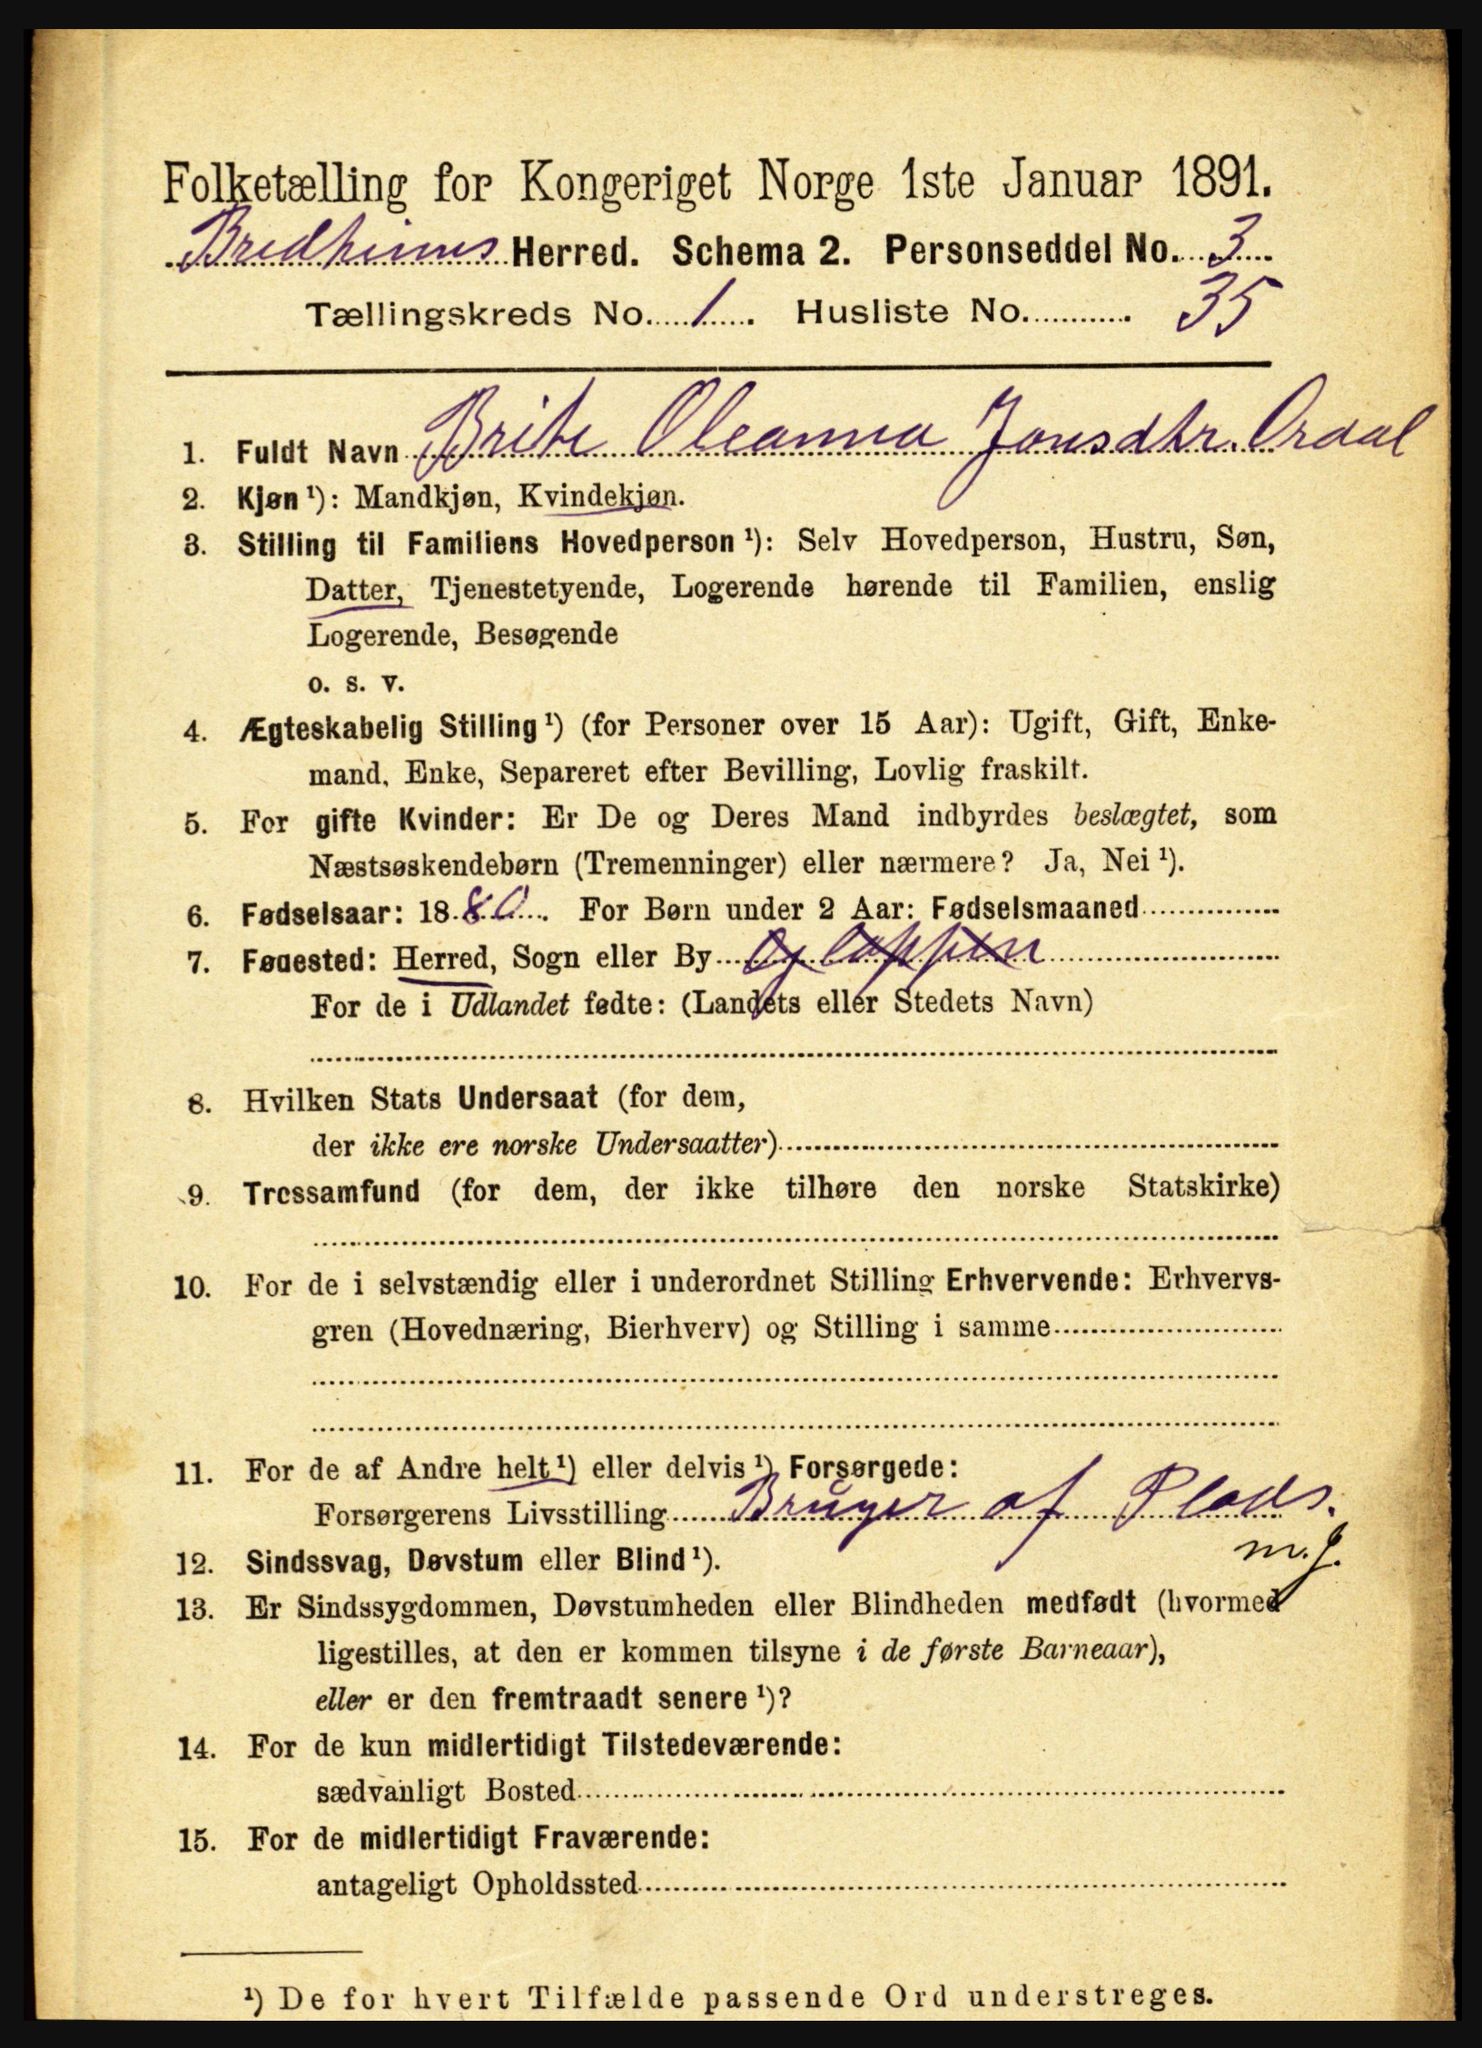 Folketælling for Kongeriget Norge 1ste Januar 1891.
Bredheims Herred. Schema 2. Personseddel No. 3
Tællingskreds No. 1. Husliste No. 35
1. Fuldt Navn Brite Oleanna Jonsdtr. Ordal
2. Kjøn ¹): Mandkjøn, Kvindekjøn.
3. Stilling til Familiens Hovedperson ¹): Selv Hovedperson, Hustru, Søn,
Datter, Tjenestetyende, Logerende hørende til Familien, enslig
Logerende, Besøgende
o. s. v.
4. Ægteskabelig Stilling ¹) (for Personer over 15 Aar): Ugift, Gift, Enke-
mand, Enke, Separeret efter Bevilling, Lovlig fraskilt.
5. For gifte Kvinder: Er De og Deres Mand indbyrdes beslægtet, som
Næstsøskendebørn (Tremenninger) eller nærmere? Ja, Nei ¹).
6. Fødselsaar: 1880. For Børn under 2 Aar: Fødselsmaaned
7. Føđested: Herred, Sogn eller By Gloppen
For de i Udlandet fødte: (Landets eller Stedets Navn)
8. Hvilken Stats Undersaat (for dem,
der ikke ere norske Undersaatter)
9. Trossamfund (for dem, der ikke tilhøre den norske Statskirke)
10. For de i selvstændig eller i underordnet Stilling Erhvervende: Erhvervs-
gren (Hovednæring, Bierhverv) og Stilling i samme
11. For de af Andre helt ¹) eller delvis ¹) Forsørgede:
Forsørgerens Livsstilling Bruger af Plads.
m.J.
12. Sindssvag, Døvstum eller Blind ¹).
13. Er Sindssygdommen, Døvstumheden eller Blindheden medfødt (hvormed
ligestilles, at den er kommen tilsyne i de første Barneaar),
eller er den fremtraadt senere ¹)?
14. For de kun midlertidigt Tilstedeværende:
sædvanligt Bosted
15. For de midlertidigt Fraværende:
antageligt Opholdssted
¹) De for hvert Tilfælde passende Ord understreges.